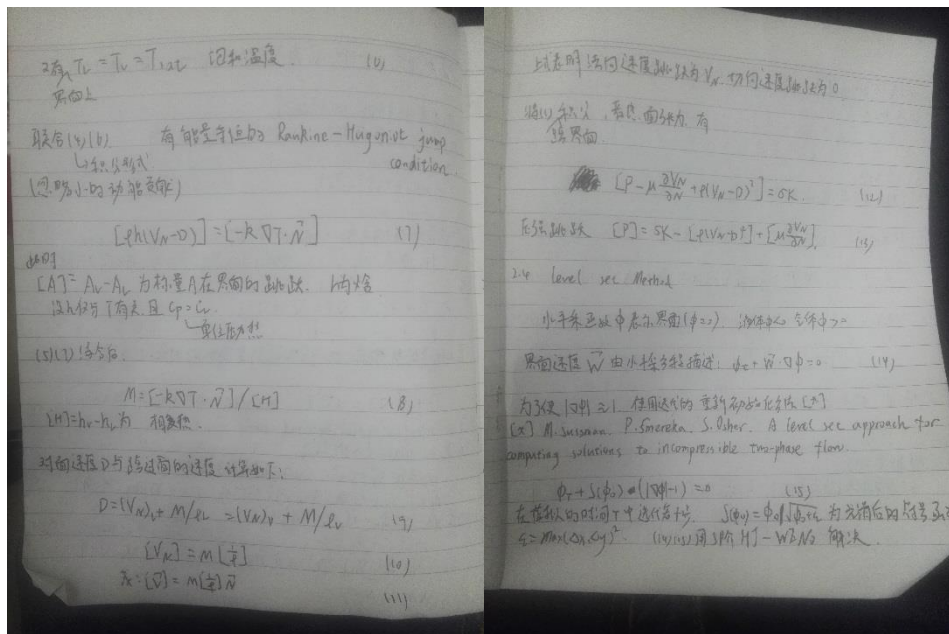 又有 T_L = T_V = T_sat 饱和温度. (6)
界面上
联合(4)(6) 有能量守恒的 Rankine-Hugoniot jump condition
↳积分形式
(忽略小的动能贡献)
[ρh(V_N-D)] = [-k∇T·N⃗] (7)
此时
[A] = A_V - A_L 为标量A在界面的跳跃. h为焓
设h仅与T有关 且 C_P = C_V
↳定压比热
(5)(7)结合后.
M = [-k∇T·N⃗] / [H] (8)
[H] = h_V - h_L 为 相变热.
界面速度D与跨过面的速度 计算如下:
D = (V_N)_L + M/ρ_L = (V_N)_V + M/ρ_V (9)
[V_N] = M[1/ρ] (10)
[V⃗] = M[1/ρ]N⃗
(11)
上式表明 法向速度跳跃为V_N. 切向速度跳跃为0.
将(1)积分, 考虑表面张力, 有
跨界面.
[P - μ ∂V_N/∂N + ρ(V_N-D)²] = σK. (12)
压强跳跃 [P] = σK - [ρ(V_N-D)²] + [μ ∂V_N/∂N], (13)
2.4 Level set Method
水平集函数 φ 表示界面(φ=0). 液体φ< 气体φ>=
界面速度 W⃗ 由水平集方程描述: φ_t + W⃗·∇φ = 0 (14)
为了使 |∇φ| ≈ 1 使用迭代的 重新初始化方法 [x]
[x] M. Sussman. P. Smereka. S. Osher. A level set approach for
computing solutions to incompressible two-phase flow.
φ_τ + S(φ_0)(|∇φ|-1) = 0 (15)
在虚拟的时间τ中进行若干步. S(φ_0) = φ_0/√(φ_0²+ε) 为光滑后的符号函数
ε = max(Δx, Δy)². (14)(15) 用 5阶 HJ-WENO 解决.